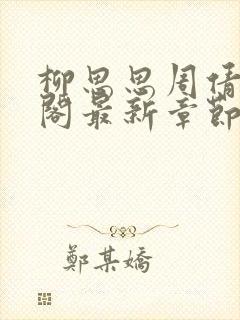 柳思思周倩
閣最新章節
鄭某嬌